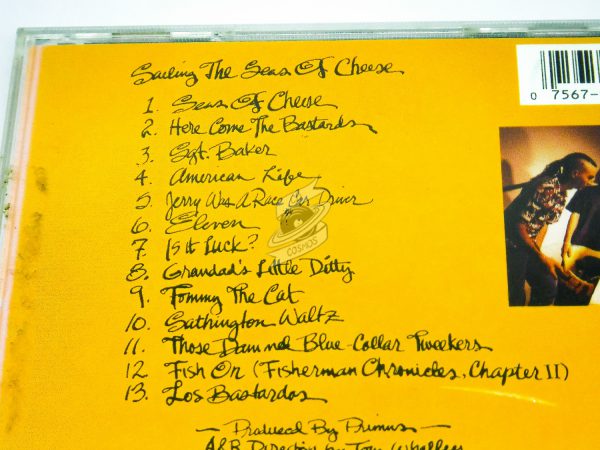 Sailing The Seas Of Cheese
1. Seas Of Cheese
2. Here Come The Bastards
3. Sgt. Baker
4. American Life
5. Jerry Was A Race Car Driver
6. Eleven
7. Is it Luck?
8. Grandad's Little Ditty
9. Tommy The Cat
10. Sathington Waltz
11. Those Damned Blue-Collar Tweekers
12. Fish On (Fisherman Chronicles, Chapter II)
13. Los Bastardos
— Produced By Primus —
A&R Direction by Tom Whalley
0 7567-
COSMOS